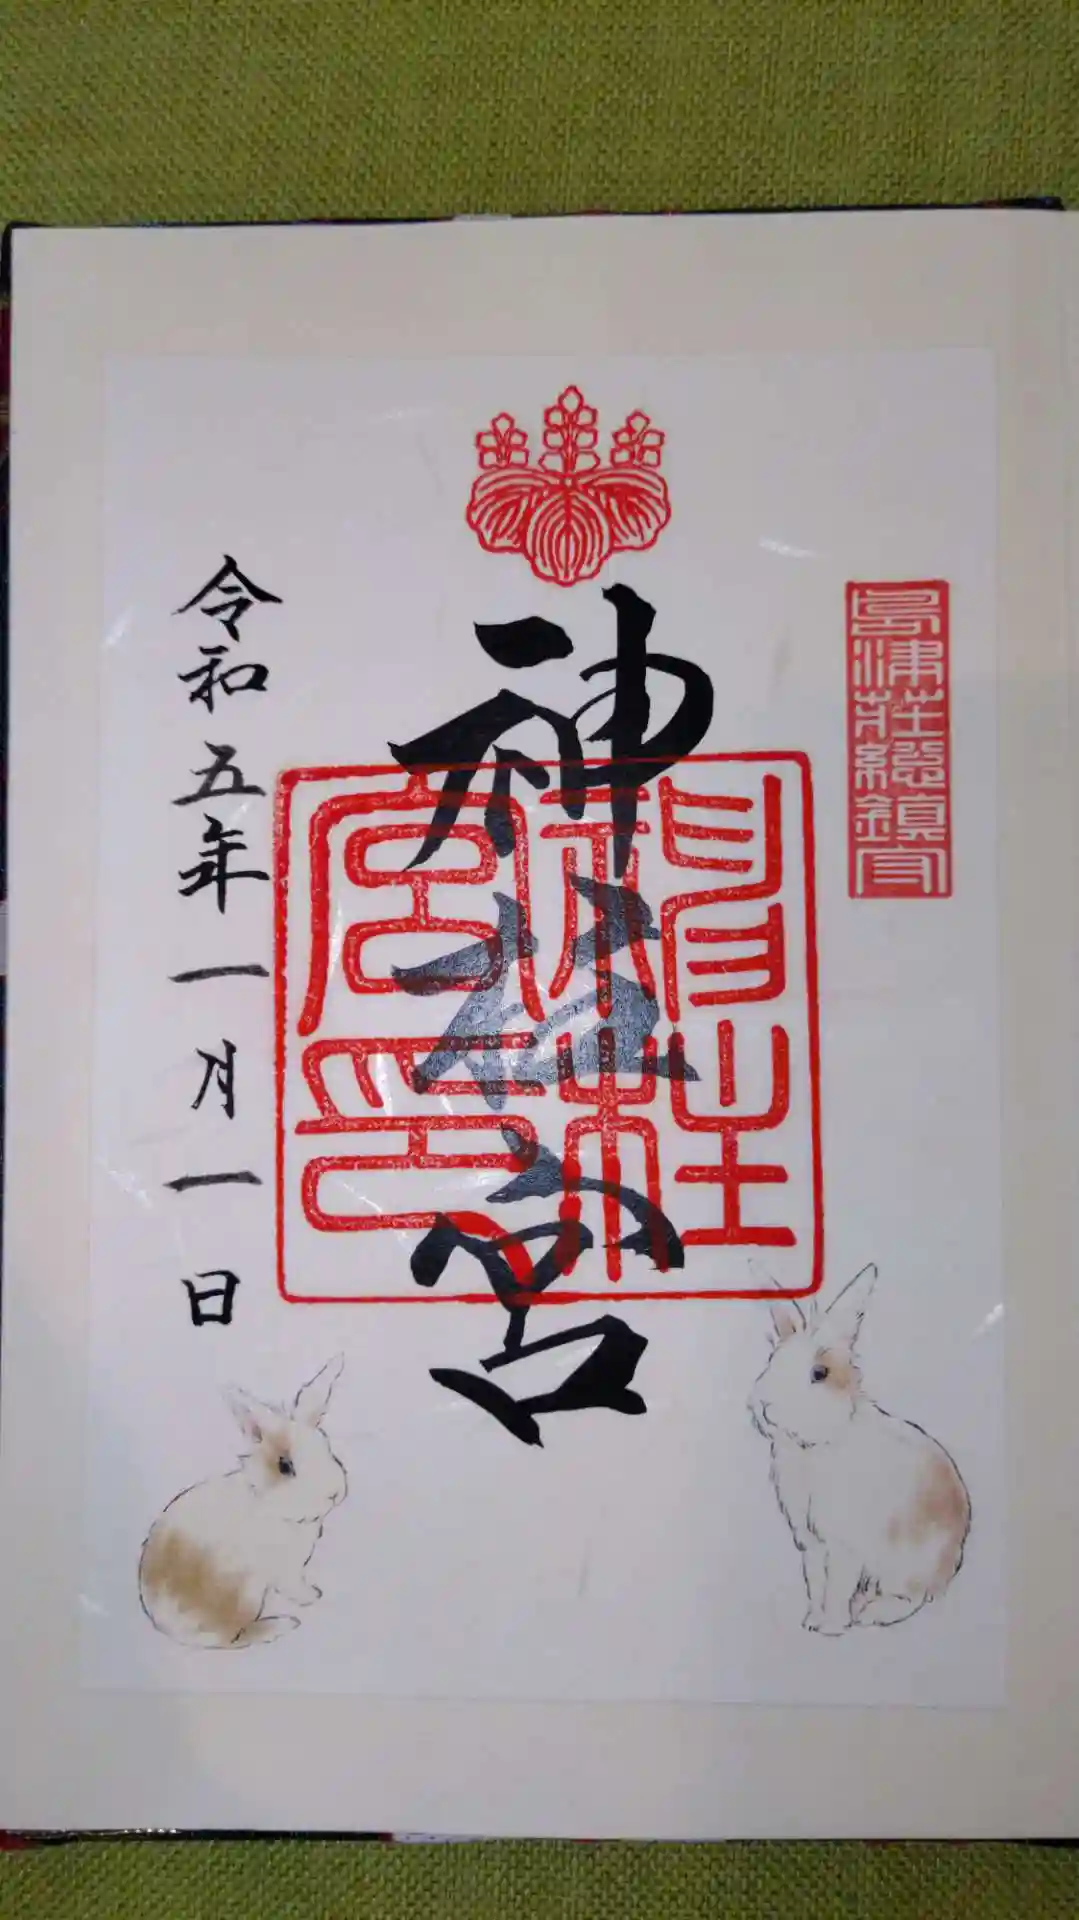 島津荘総鎮守
神柱宮
神柱宮印
令和五年一月一日